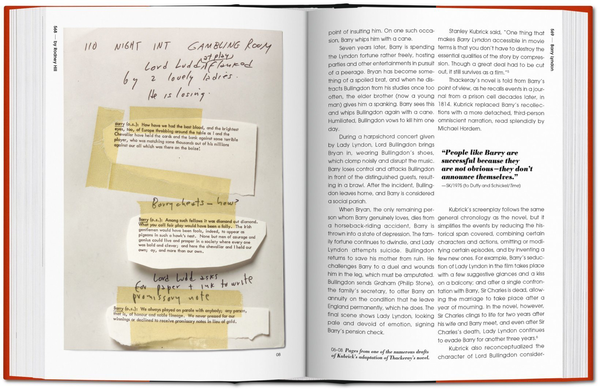 568 — by Rodney Hill
110 NIGHT INT GAMBLING ROOM
Lord Ludd at play
flanked
by 2 lovely ladies.
He is losing.
Barry (v.o.): Now here we had the best blood, and the brightest
eyes, too, of Europe thronging around the table as I and the
Chevalier have held the cards and the bank against some terrible
player, who was matching some thousands out of his millions
against our all which was there on the baize!
Barry cheats — how?
Barry (v.o.): Among such fellows it was diamond cut diamond.
What you call fair play would have been a folly. The
gentleman would have been fools, indeed, to appear as
pigeons in such a hawk's nest. None but men of courage and
genius could live and prosper in a society where every one
was bold and clever, and here the chevalier and I held our
own; ay, and more than our own.
Lord Ludd asks
for paper + ink to write
promissory note
Barry (v.o.): We always played on parole with anybody; any person,
that is, of honour and noble lineage. We never pressed for our
winnings or declined to receive promissory notes in lieu of gold.
point of insulting him. On one such occa-
sion, Barry whips him with a cane.
Seven years later, Barry is spending
the Lyndon fortune rather freely, hosting
parties and other entertainments in pursuit
of a peerage. Bryan has become some-
thing of a spoiled brat, and when he dis-
tracts Bullingdon from his studies once too
often, the elder brother (now a young
man) gives him a spanking. Barry sees this
and whips Bullingdon again with a cane.
Humiliated, Bullingdon vows to kill him one
day.
During a harpsichord concert given
by Lady Lyndon, Lord Bullingdon brings
Bryan in, wearing Bullingdon's shoes,
which clomp noisily and disrupt the music.
Barry loses control and attacks Bullingdon
in front of the distinguished guests, result-
ing in a brawl. After the incident, Bulling-
don leaves home, and Barry is considered
a social pariah.
When Bryan, the only remaining per-
son whom Barry genuinely loves, dies from
a horseback-riding accident, Barry is
thrown into a state of depression. The fam-
ily fortune continues to dwindle, and Lady
Lyndon attempts suicide. Bullingdon
returns to save his mother from ruin. He
challenges Barry to a duel and wounds
him in the leg, which must be amputated.
Bullingdon sends Graham (Philip Stone),
the family's secretary, to offer Barry an
annuity on the condition that he leave
England permanently, which he does. The
final scene shows Lady Lyndon, looking
pale and devoid of emotion, signing
Barry's pension check.
Pages from one of the numerous drafts
of Kubrick's adaptation of Thackeray's novel.
Stanley Kubrick said, "One thing that
makes Barry Lyndon accessible in movie
terms is that you don't have to destroy the
essential qualities of the story by compres-
sion. Though a great deal had to be cut
out, it still survives as a film."
Thackeray's novel is told from Barry's
point of view, as he recalls events in a jour-
nal from a prison cell decades later, in
1814. Kubrick replaced Barry's recollec-
tions with a more detached, third-person
omniscient narration, read splendidly by
Michael Hordern.
"People like Barry are
successful because they
are not obvious—they don't
announce themselves."
—SK/1975 (to Duffy and Schickel/Time)
Kubrick's screenplay follows the same
general chronology as the novel, but it
simplifies the events by reducing the his-
torical span covered, combining certain
characters and actions, omitting or modi-
fying certain episodes, and by inventing a
few new ones. For example, Barry's seduc-
tion of Lady Lyndon in the film takes place
with a few suggestive glances and a kiss
on a balcony; and after a single confron-
tation with Barry, Sir Charles is dead, allow-
ing the marriage to take place after a
year of mourning. In the novel, however,
Sir Charles clings to life for two years after
his wife and Barry meet, and even after Sir
Charles's death, Lady Lyndon continues
to evade Barry for another three years.
Kubrick also reconceptualized the
character of Lord Bullingdon consider-
569 — Barry Lyndon